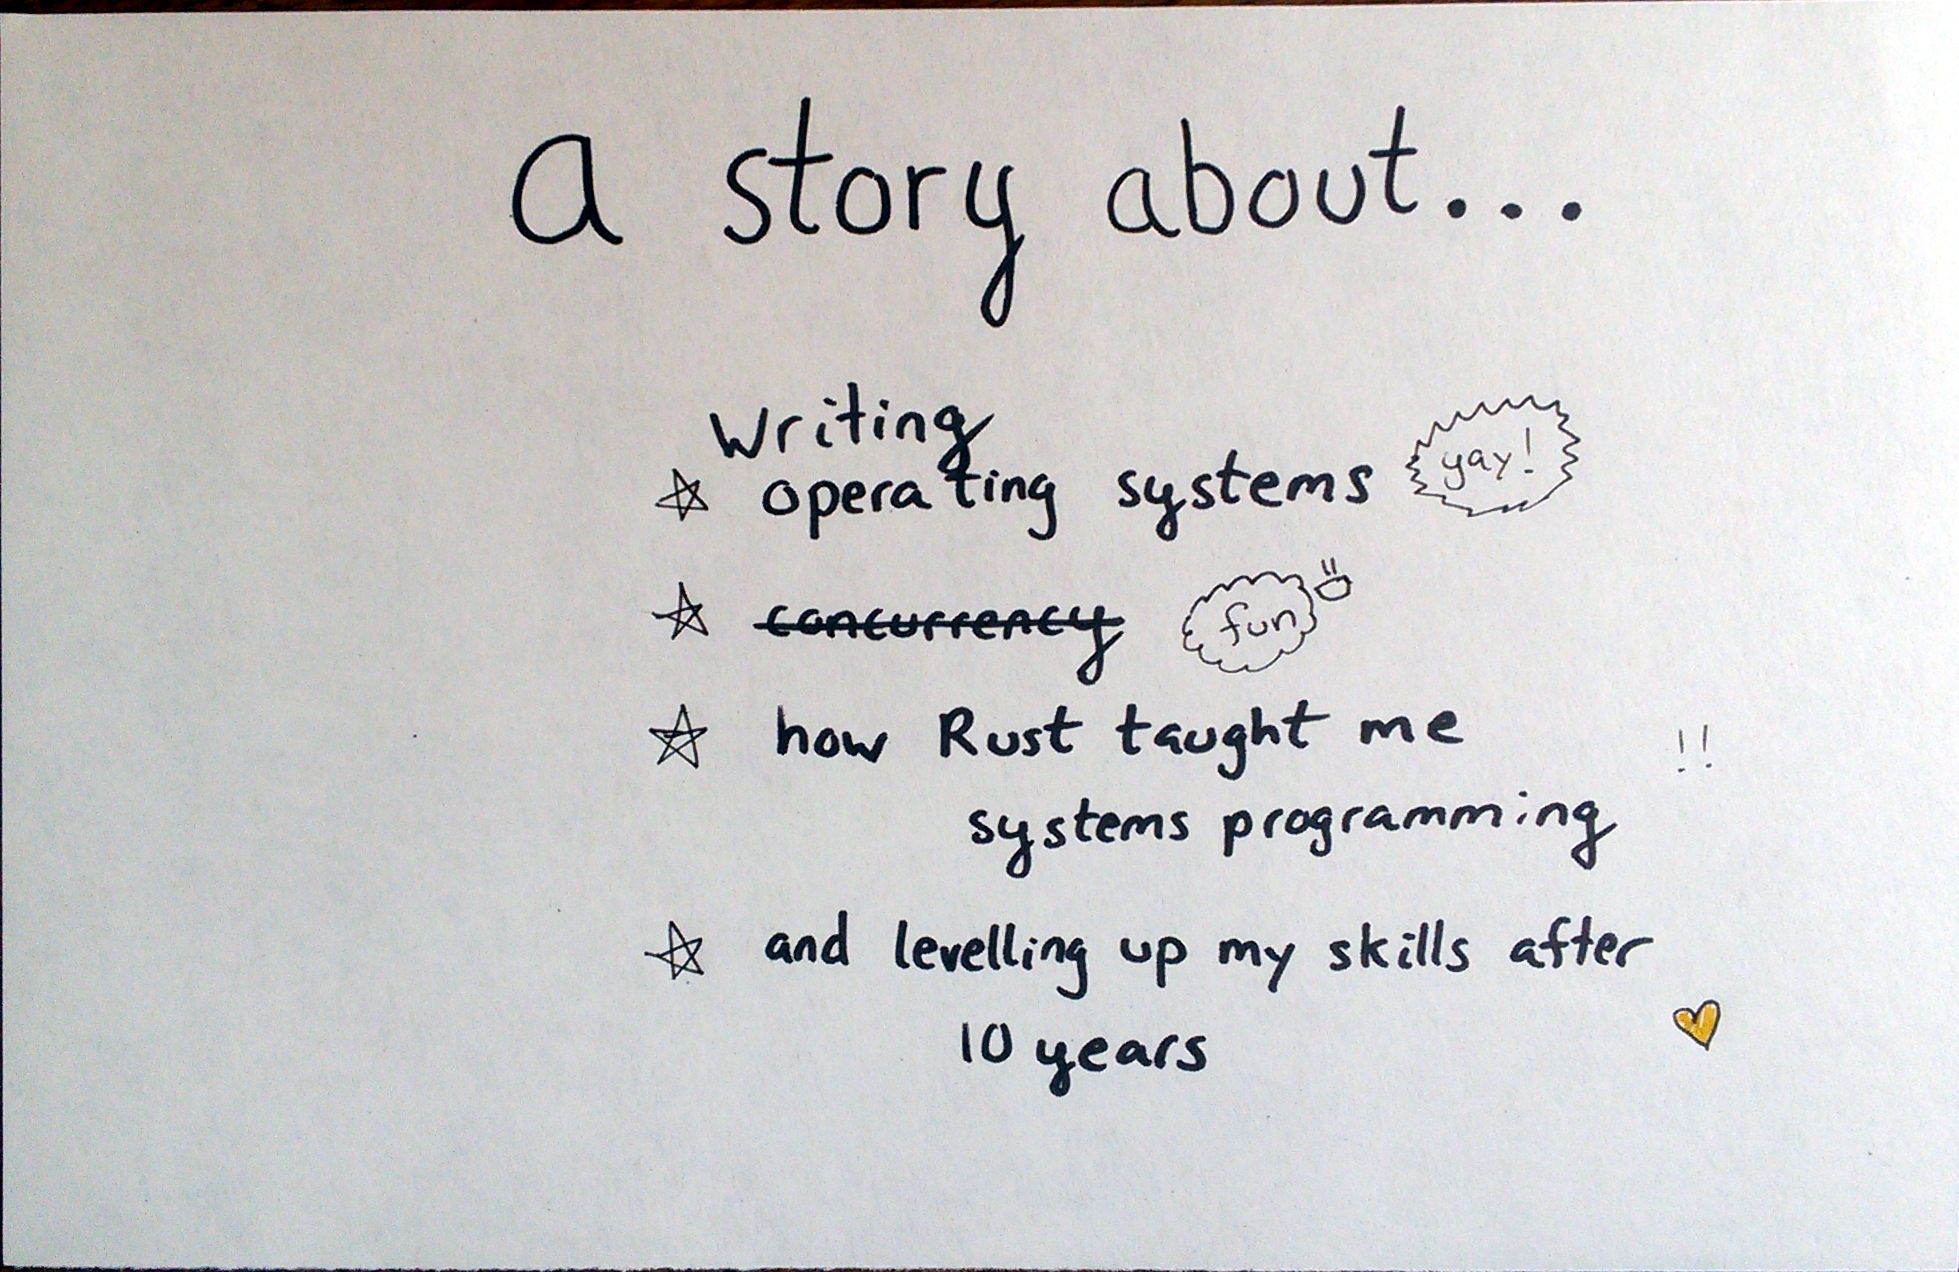 a story about...
Writing
operating systems yay!
concurrency fun
how Rust taught me !!
systems programming
and levelling up my skills after
10 years